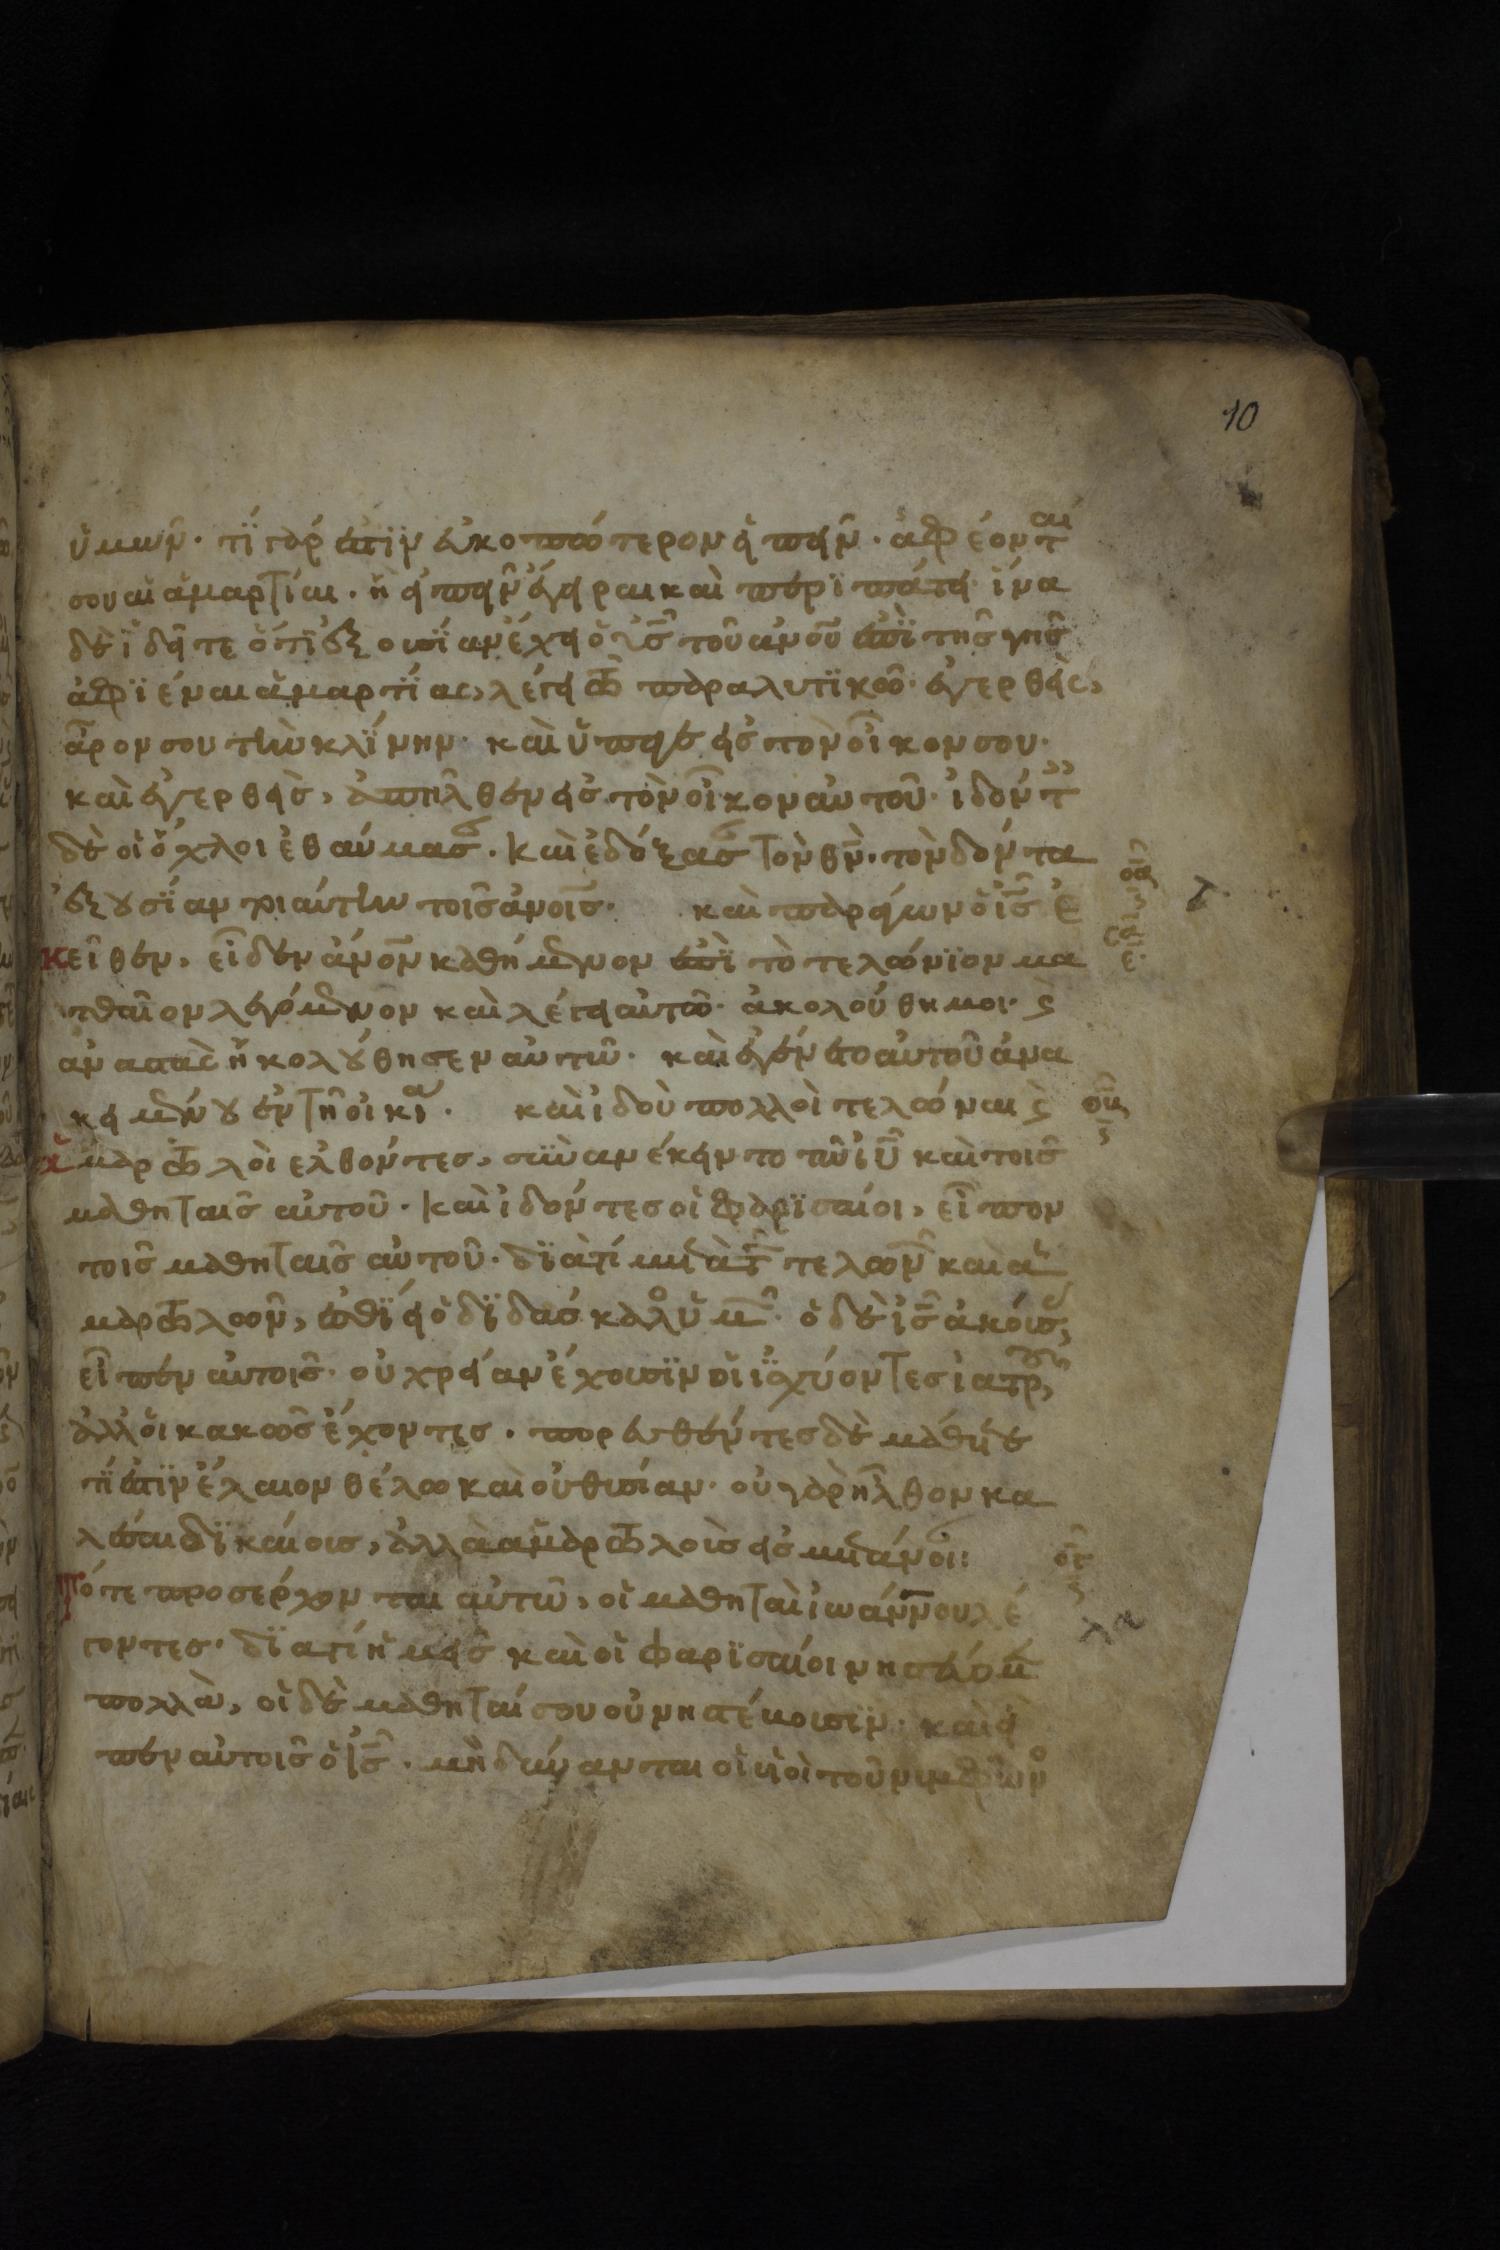 10
ὑμῶν· τί γάρ ἐστιν εὐκοπώτερον εἰπεῖν· ἀφέονται
σου αἱ ἁμαρτίαι· ἢ εἰπεῖν ἔγειραι καὶ περιπάτει· ἵνα
δὲ ἰδῆτε ὅτι ἐξουσίαν ἔχει ὁ υἱς τοῦ ἀνου ἐπὶ τῆς γῆς
ἀφιέναι ἁμαρτίας, λέγει τῶ παραλυτικῶ· ἐγερθεὶς,
ἆρον σου τὴν κλίνην· καὶ ὕπαγε εἰς τὸν οἶκον σου·
καὶ ἐγερθεὶς, ἀπῆλθεν εἰς τὸν οἶκον αὐτοῦ· ἰδόντ
δὲ οἱ ὄχλοι ἐθαύμασ· καὶ ἐδόξασ τὸν θν· τὸν δόντα
ἐξουσίαν τοιαύτην τοῖς ἀνοις· καὶ παράγων ὁ ις ἐ
κεῖθεν, εἶδεν ἀνον καθήμενον ἐπὶ τὸ τελώνιον μα
τθαῖον λεγόμενον καὶ λέγει αὐτῶ· ἀκολούθη μοι· ϗ
ἀναστὰς ἠκολούθησεν αὐτῶ· καὶ ἐγέν το αὐτοῦ ἀνα
κειμένου ἐν τῆ οἰκία· καὶ ἰδοὺ πολλοὶ τελῶναι ϗ
ἁμαρτωλοὶ ελθόντες, συνανέκειντο τῶ ιυ καὶ τοῖς
μαθηταῖς αὐτοῦ· καὶ ἰδόντες οἱ φαρισαίοι, εἶπον
τοῖς μαθηταῖς αὐτοῦ· διὰ τί μετὰ τ τελων καὶ ἁ
μαρτωλῶν, ἐσθίει ὁ διδάσκαλο ὑμ· ὁ δὲ ις ἀκούσ,
εἶπεν αὐτοῖς· οὐ χρείαν ἔχουσιν οἱ ἰσχύοντες ἰατρ,
ἀλλ οἱ κακῶς ἔχοντες· πορευθέντες δὲ μάθετε
τί ἐστιν ἔλαιον θέλω καὶ οὐ θυσίαν· οὐ γὰρ ἦλθον κα
λέσαι δικαίους, ἀλλὰ ἁμαρτωλοὺς εἰς μετάνοι:
Τότε προσέρχονται αὐτῶ, οἱ μαθηταὶ ἰωάννου λέ
γοντες· διατί ἡμεῖς καὶ οἱ φαρισαίοι νηστεύομ
πολλὰ, οἱ δὲ μαθηταί σου οὐ νηστέυουσιν· καὶ εἶ
πεν αὐτοῖς ὁ ις· μὴ δύνανται οἱ υἱοὶ τοῦ νυμφῶνο